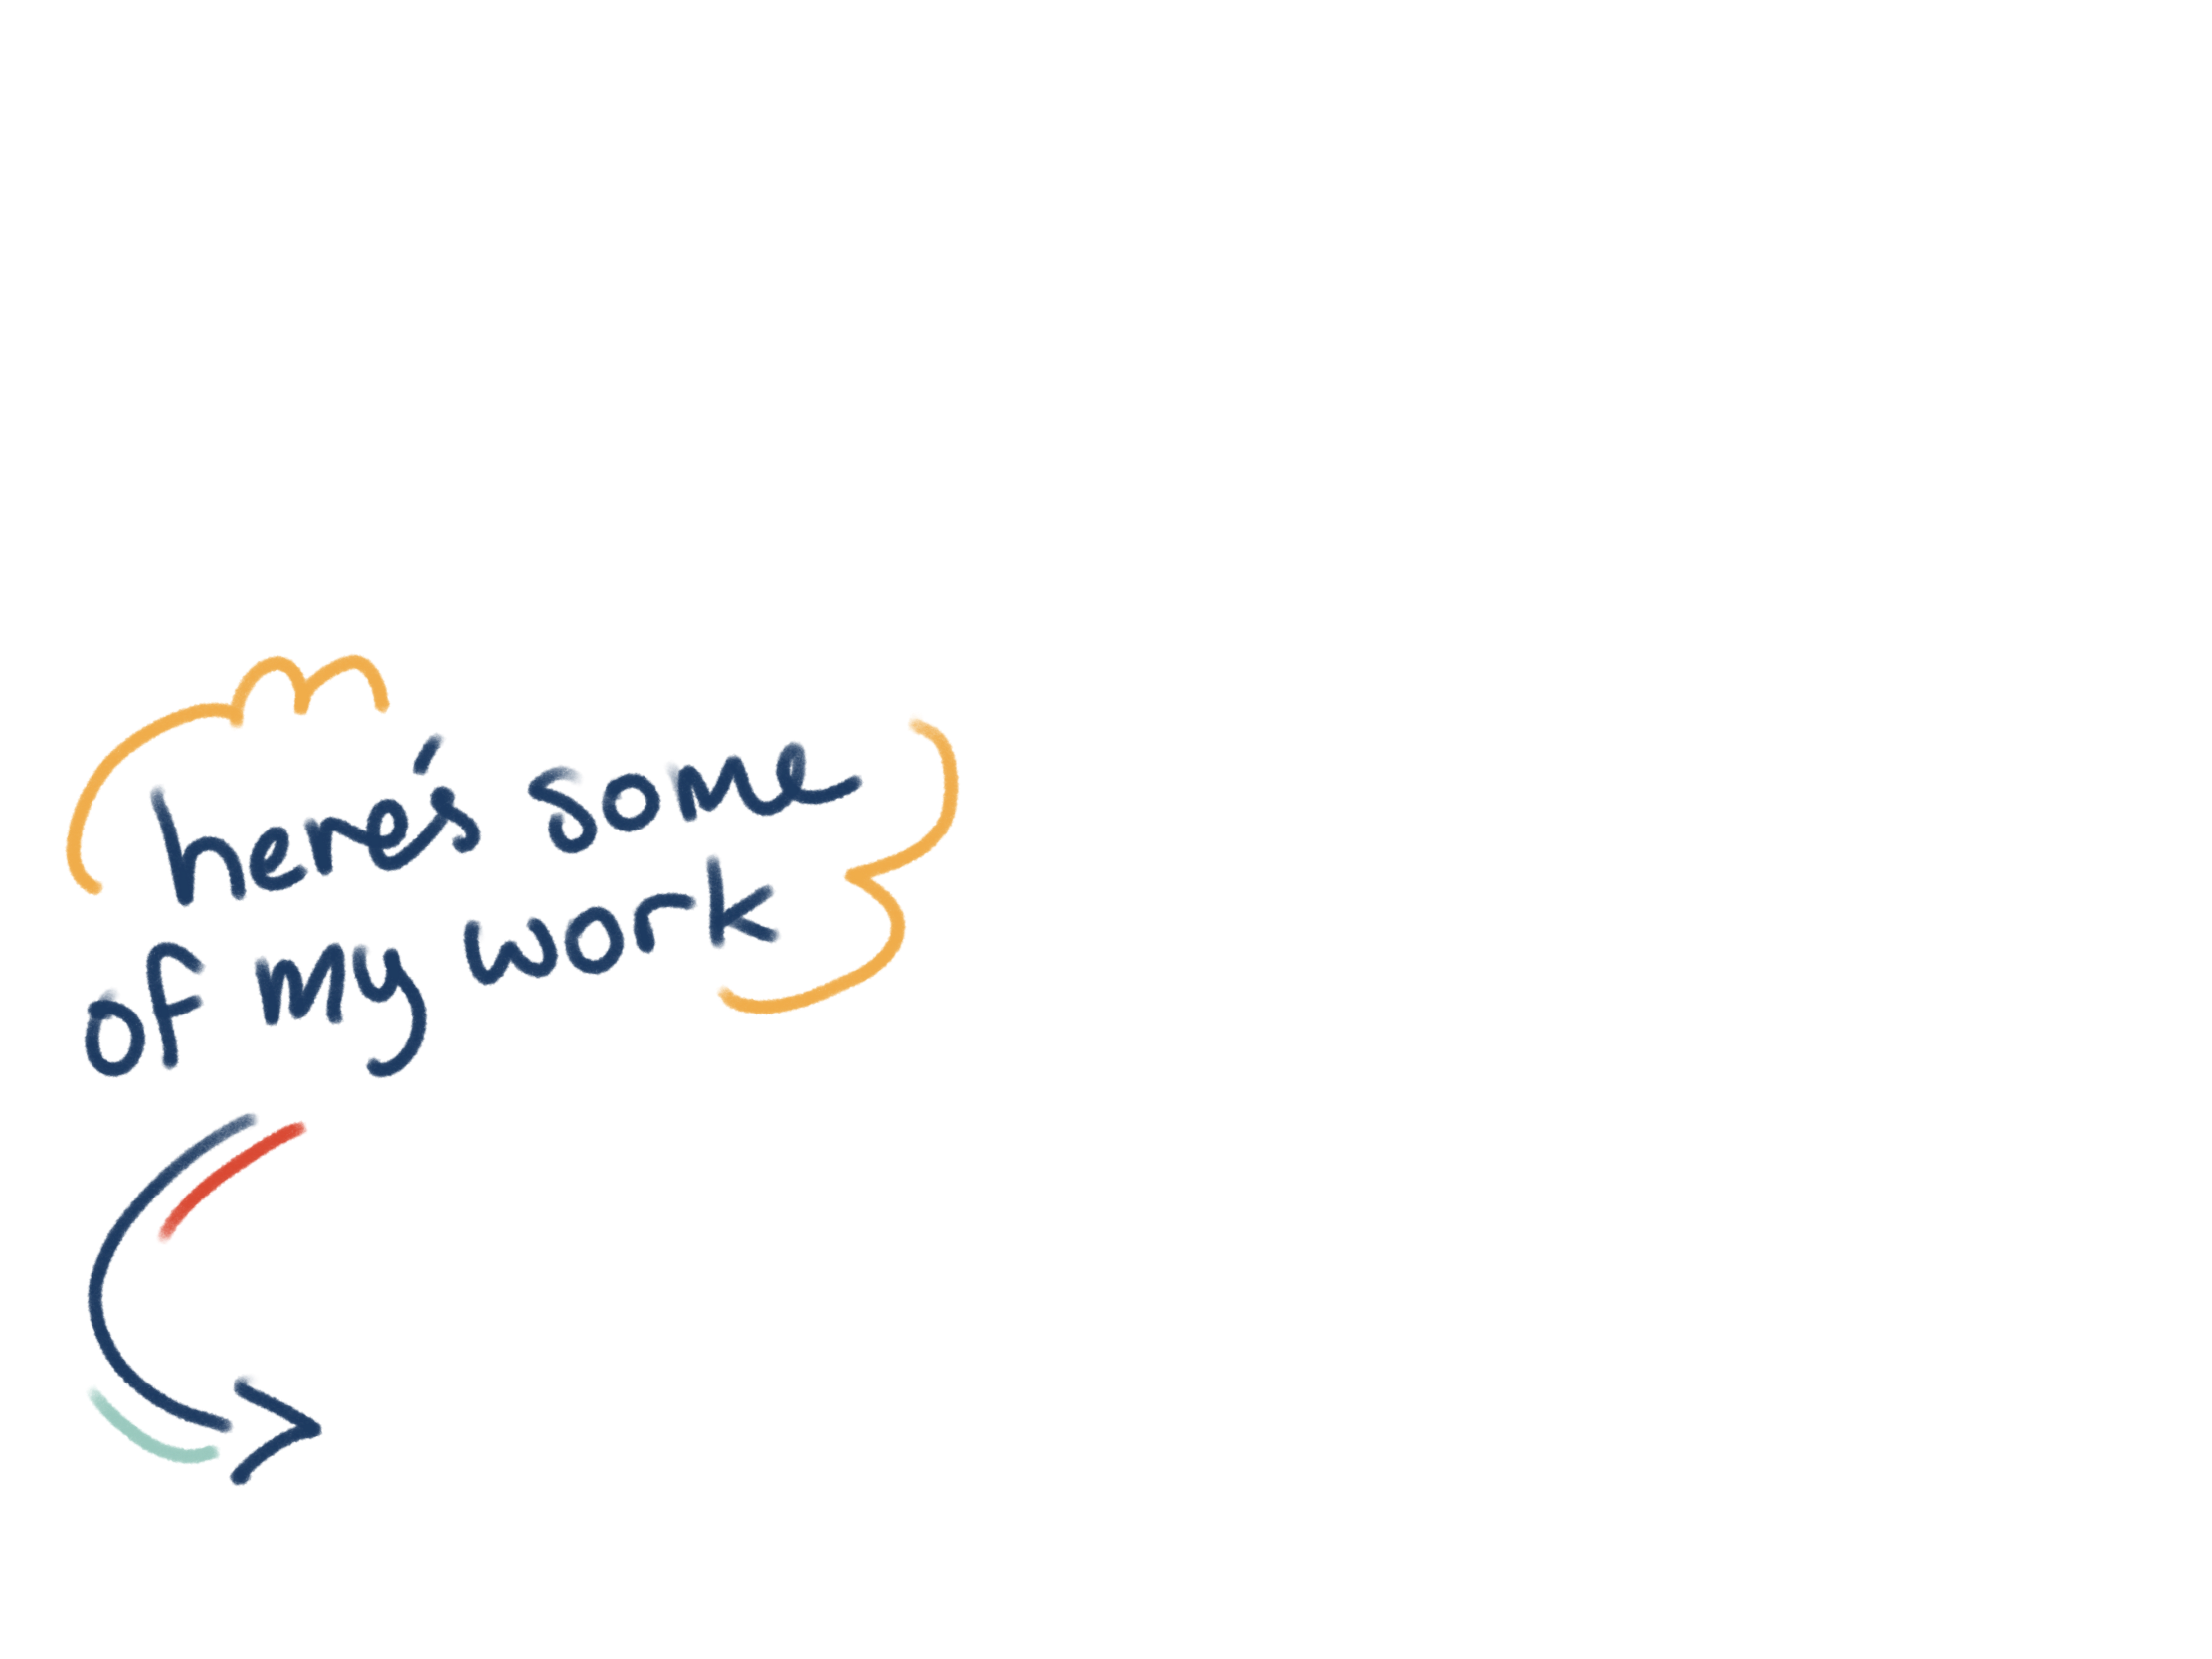 here's some
of my work